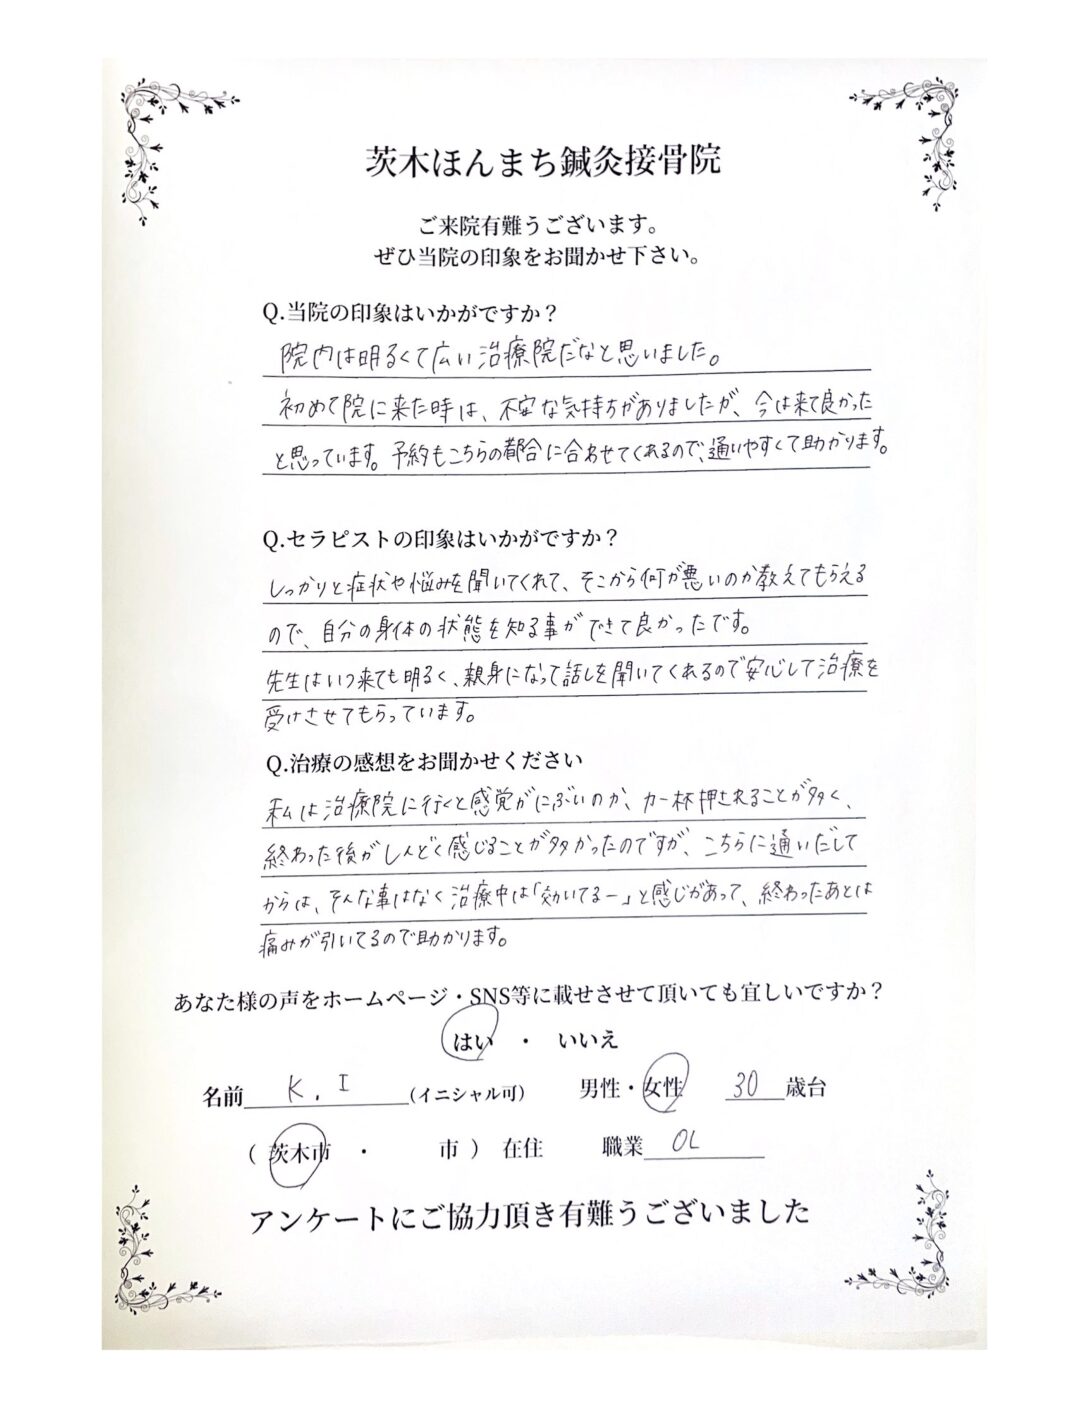 茨木ほんまち鍼灸接骨院
ご来院有難うございます。
ぜひ当院の印象をお聞かせ下さい。
Q.当院の印象はいかがですか？
院内は明るくて広い治療院だなと思いました。
初めて院に来た時は、不安な気持ちがありましたが、今は来て良かった
と思っています。予約もこちらの都合に合わせてくれるので、通いやすくて助かります。
Q.セラピストの印象はいかがですか？
しっかりと症状や悩みを聞いてくれて、そこから何が悪いのか教えてもらえる
ので、自分の身体の状態を知る事ができて良かったです。
先生はいつ来ても明るく、親身になって話しを聞いてくれるので安心して治療を
受けさせてもらっています。
Q.治療の感想をお聞かせください
私は治療院に行くと感覚がにぶいのか、力一杯押されることが多く、
終わった後がしんどく感じることが多かったのですが、こちらに通いだして
からは、そんな事はなく治療中は「効いてるー」と感じがあって、終わったあとは
痛みが引いてるので助かります。
あなた様の声をホームページ・SNS等に載せさせて頂いても宜しいですか？
はい ・ いいえ
名前 K.I (イニシャル可) 男性・女性 30歳台
( 茨木市 ・ 市 ) 在住 職業 OL
アンケートにご協力頂き有難うございました